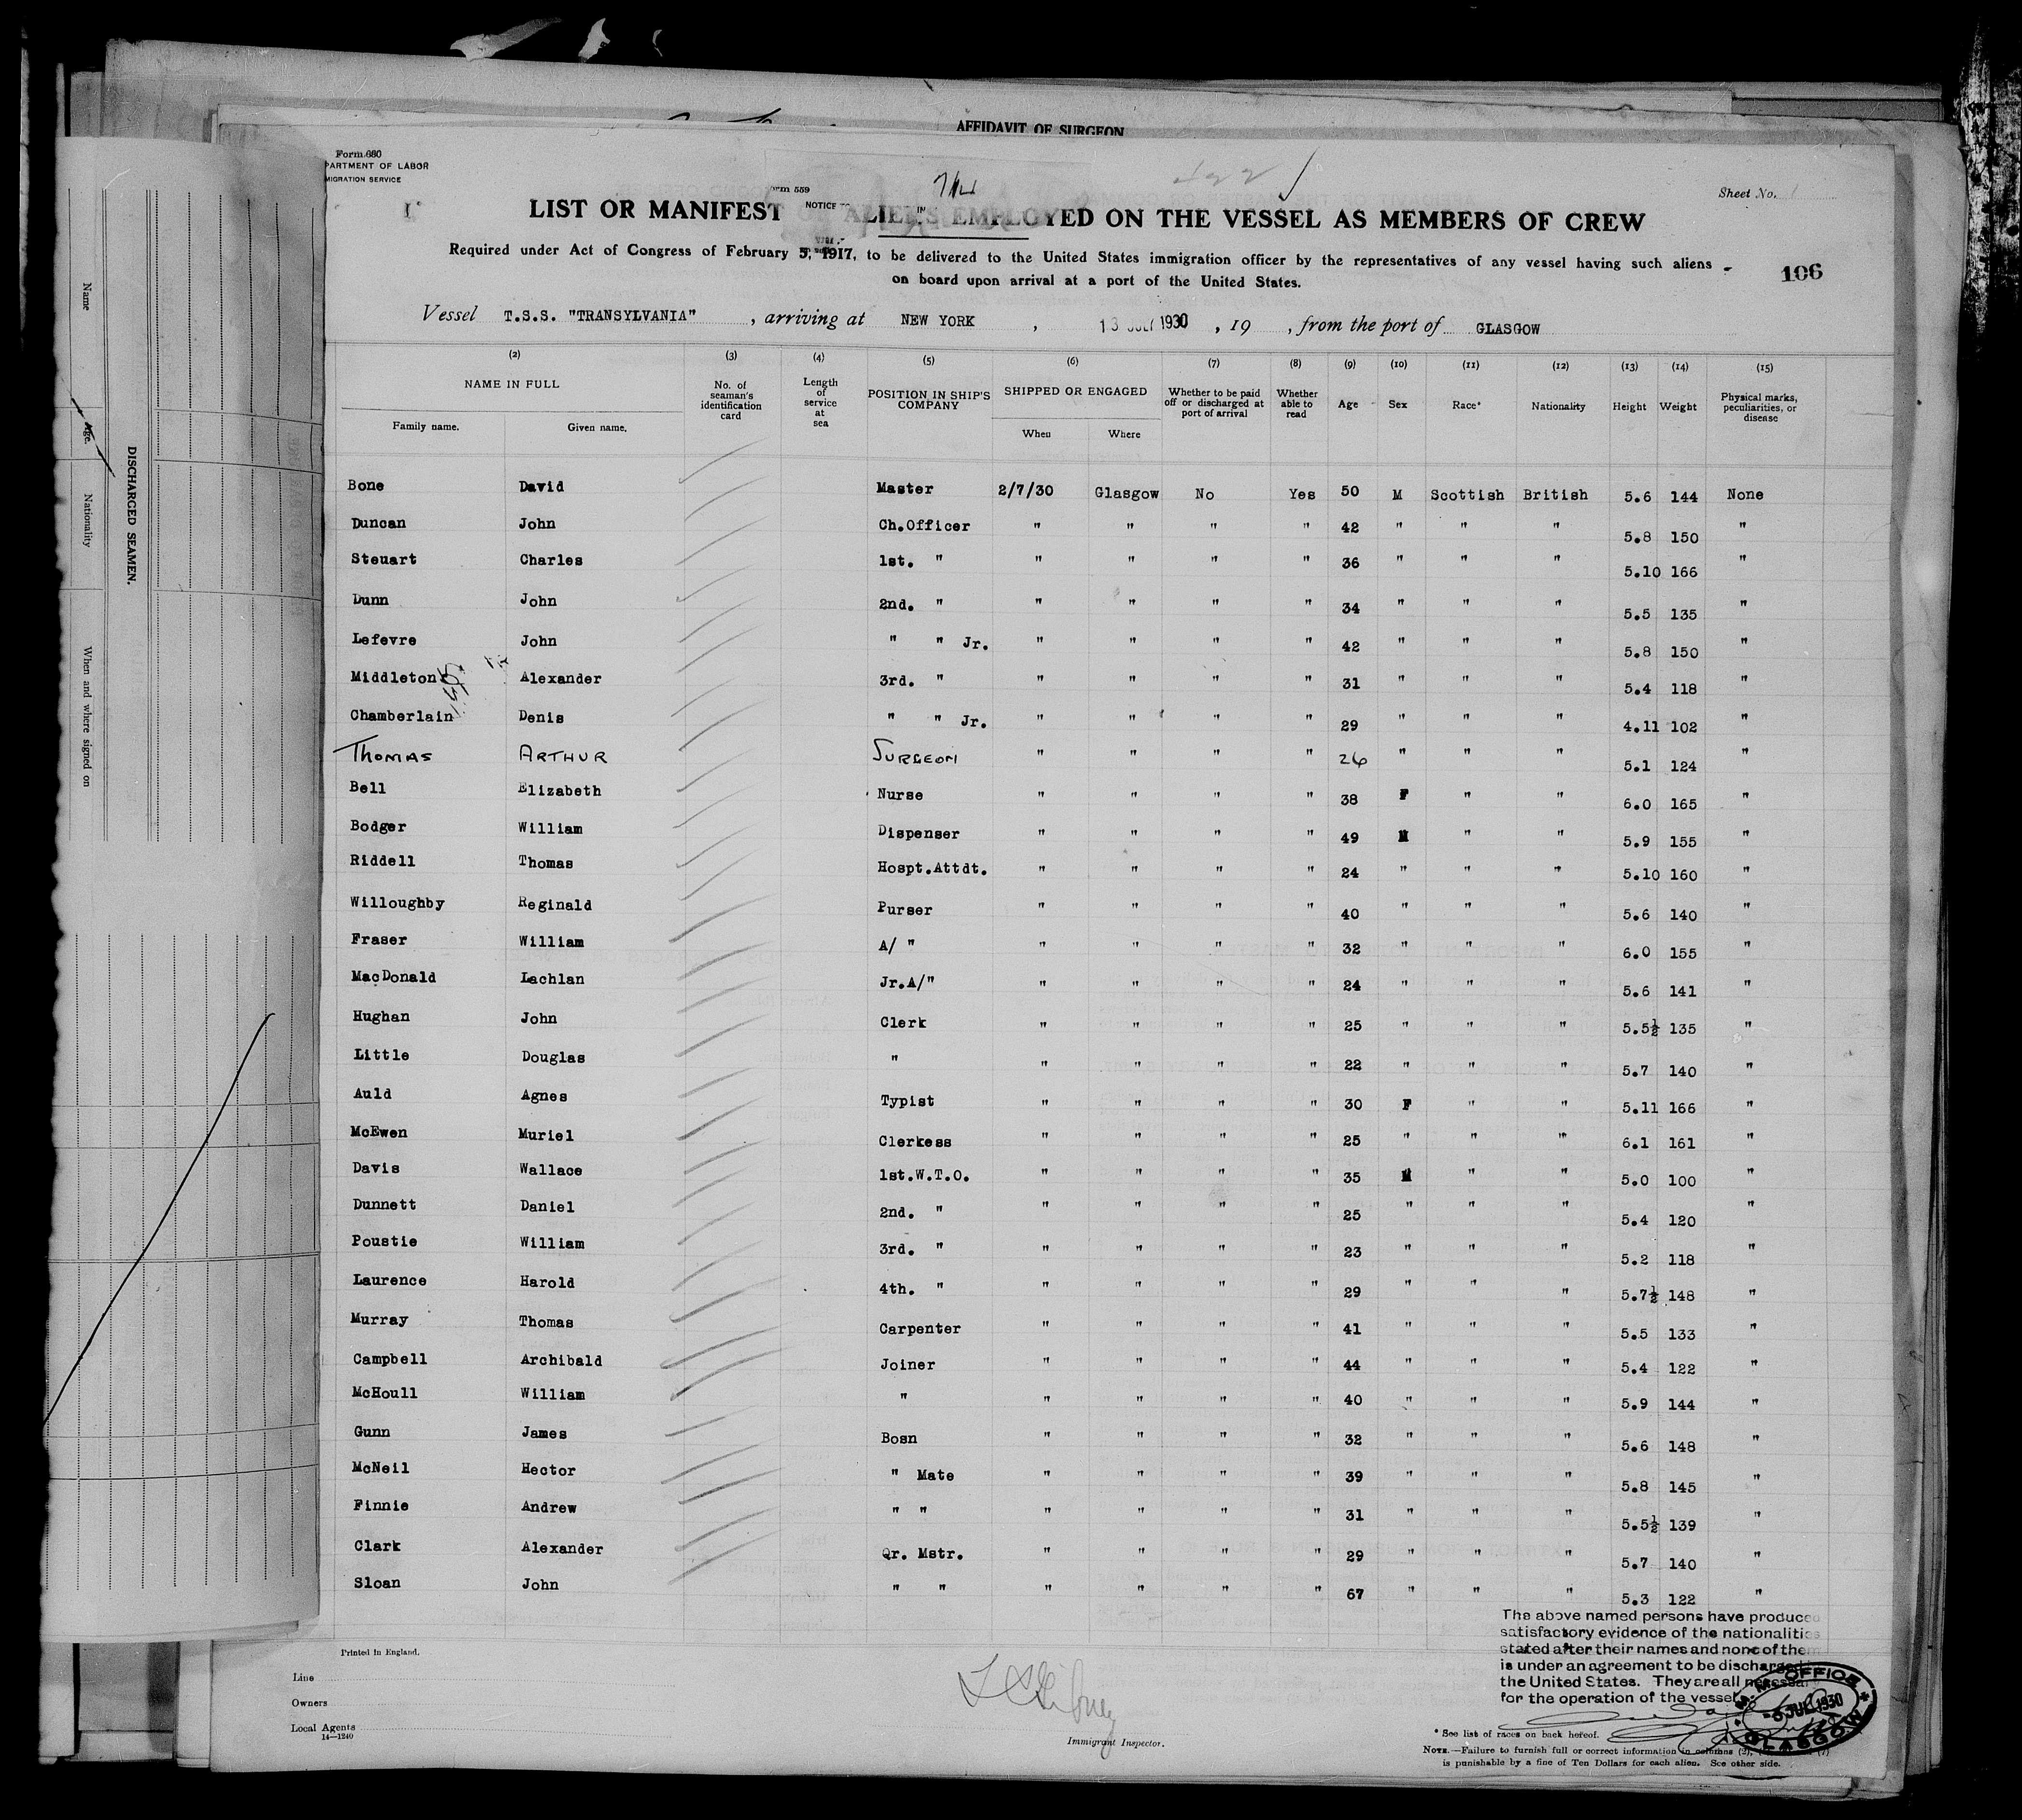 AFFIDAVIT OF SURGEON
Form 680
PARTMENT OF LABOR
MIGRATION SERVICE
orm 559
NOTICE TO
Sheet No. 1
LIST OR MANIFEST OF ALIENS EMPLOYED ON THE VESSEL AS MEMBERS OF CREW
Required under Act of Congress of February 5, 1917, to be delivered to the United States immigration officer by the representatives of any vessel having such aliens
on board upon arrival at a port of the United States.
106
Vessel T.S.S. "TRANSYLVANIA", arriving at NEW YORK, 13 JULY 1930, 19 , from the port of GLASGOW
(2) (3) (4) (5) (6) (7) (8) (9) (10) (11) (12) (13) (14) (15)
NAME IN FULL No. of seaman's identification card Length of service at sea POSITION IN SHIP'S COMPANY SHIPPED OR ENGAGED Whether to be paid off or discharged at port of arrival Whether able to read Age Sex Race* Nationality Height Weight Physical marks, peculiarities, or disease
Family name. Given name. When Where
Bone David Master 2/7/30 Glasgow No Yes 50 M Scottish British 5.6 144 None
Duncan John Ch.Officer " " " " 42 " " " 5.8 150 "
Steuart Charles 1st. " " " " " 36 " " " 5.10 166 "
Dunn John 2nd. " " " " " 34 " " " 5.5 135 "
Lefevre John " " Jr. " " " " 42 " " " 5.8 150 "
Middleton Alexander 3rd. " " " " " 31 " " " 5.4 118 "
Chamberlain Denis " " Jr. " " " " 29 " " " 4.11 102 "
THOMAS ARTHUR SURGEON " " " " 26 " " " 5.1 124 "
Bell Elizabeth Nurse " " " " 38 F " " 6.0 165 "
Bodger William Dispenser " " " " 49 M " " 5.9 155 "
Riddell Thomas Hospt.Attdt. " " " " 24 " " " 5.10 160 "
Willoughby Reginald Purser " " " " 40 " " " 5.6 140 "
Fraser William A/ " " " " " 32 " " " 6.0 155 "
MacDonald Lachlan Jr.A/" " " " " 24 " " " 5.6 141 "
Hughan John Clerk " " " " 25 " " " 5.5½ 135 "
Little Douglas " " " " " 22 " " " 5.7 140 "
Auld Agnes Typist " " " " 30 F " " 5.11 166 "
McEwen Muriel Clerkess " " " " 25 " " " 6.1 161 "
Davis Wallace 1st.W.T.O. " " " " 35 M " " 5.0 100 "
Dunnett Daniel 2nd. " " " " " 25 " " " 5.4 120 "
Poustie William 3rd. " " " " " 23 " " " 5.2 118 "
Laurence Harold 4th. " " " " " 29 " " " 5.7½ 148 "
Murray Thomas Carpenter " " " " 41 " " " 5.5 133 "
Campbell Archibald Joiner " " " " 44 " " " 5.4 122 "
McHoull William " " " " " 40 " " " 5.9 144 "
Gunn James Bosn " " " " 32 " " " 5.6 148 "
McNeil Hector " Mate " " " " 39 " " " 5.8 145 "
Finnie Andrew " " " " " " 31 " " " 5.5½ 139 "
Clark Alexander Qr. Mstr. " " " " 29 " " " 5.7 140 "
Sloan John " " " " " " 67 " " " 5.3 122 "
The above named persons have produced
satisfactory evidence of the nationalities
stated after their names and none of them
is under an agreement to be discharged
the United States. They are all necessary
for the operation of the vessel.
OFFICE
JUL 1930
GLASGOW
Printed in England.
Line
Owners
Local Agents
14—1240
Immigrant Inspector.
* See list of races on back hereof.
NOTE.—Failure to furnish full or correct information in columns (2), (7)
is punishable by a fine of Ten Dollars for each alien. See other side.
DISCHARGED SEAMEN.
Name
Age.
Nationality
When and where signed on